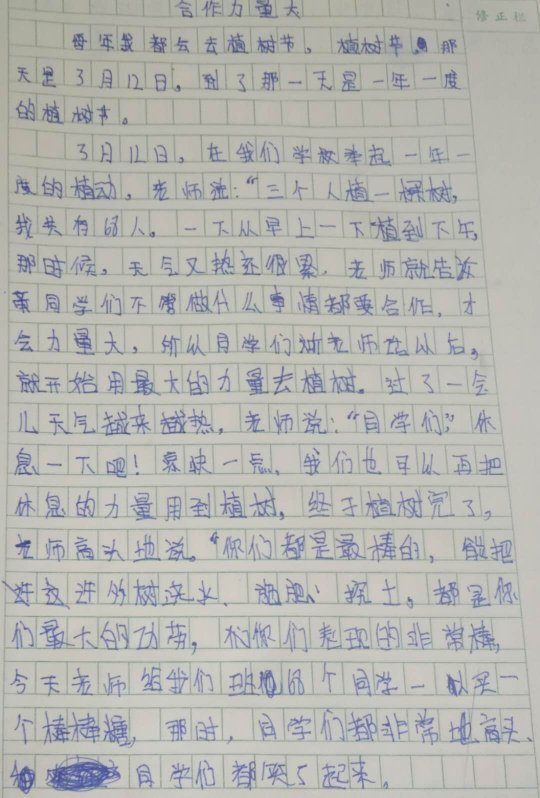 合作力量大
每年我都会去植树节。植树节那
天是3月12日。到了那一天是一年一度
的植树节。
3月12日,在我们学校举起一年一
度的植动,老师说:“三个人植一棵树,
我共有68人。一下从早上一下植到下午,
那时候,天气又热还很累,老师就告诉
同学们不管做什么事情都要合作,才
会力量大,所以同学们听老师话以后,
就开始用最大的力量去植树。过了一会
儿天气越来越热,老师说:“同学们”休
息一下吧!凉快一点,我们也可以再把
休息的力量用到植树,终于植树完了,
老师高头地说。“你们都是最棒的,能把
许多树浇水、施肥、挖土。都是你
们最大的功劳,你们表现的非常棒,
今天老师给我们班68个同学一买一
个棒棒糖,那时,同学们都非常地高头、
同学们都笑了起来。
修正栏